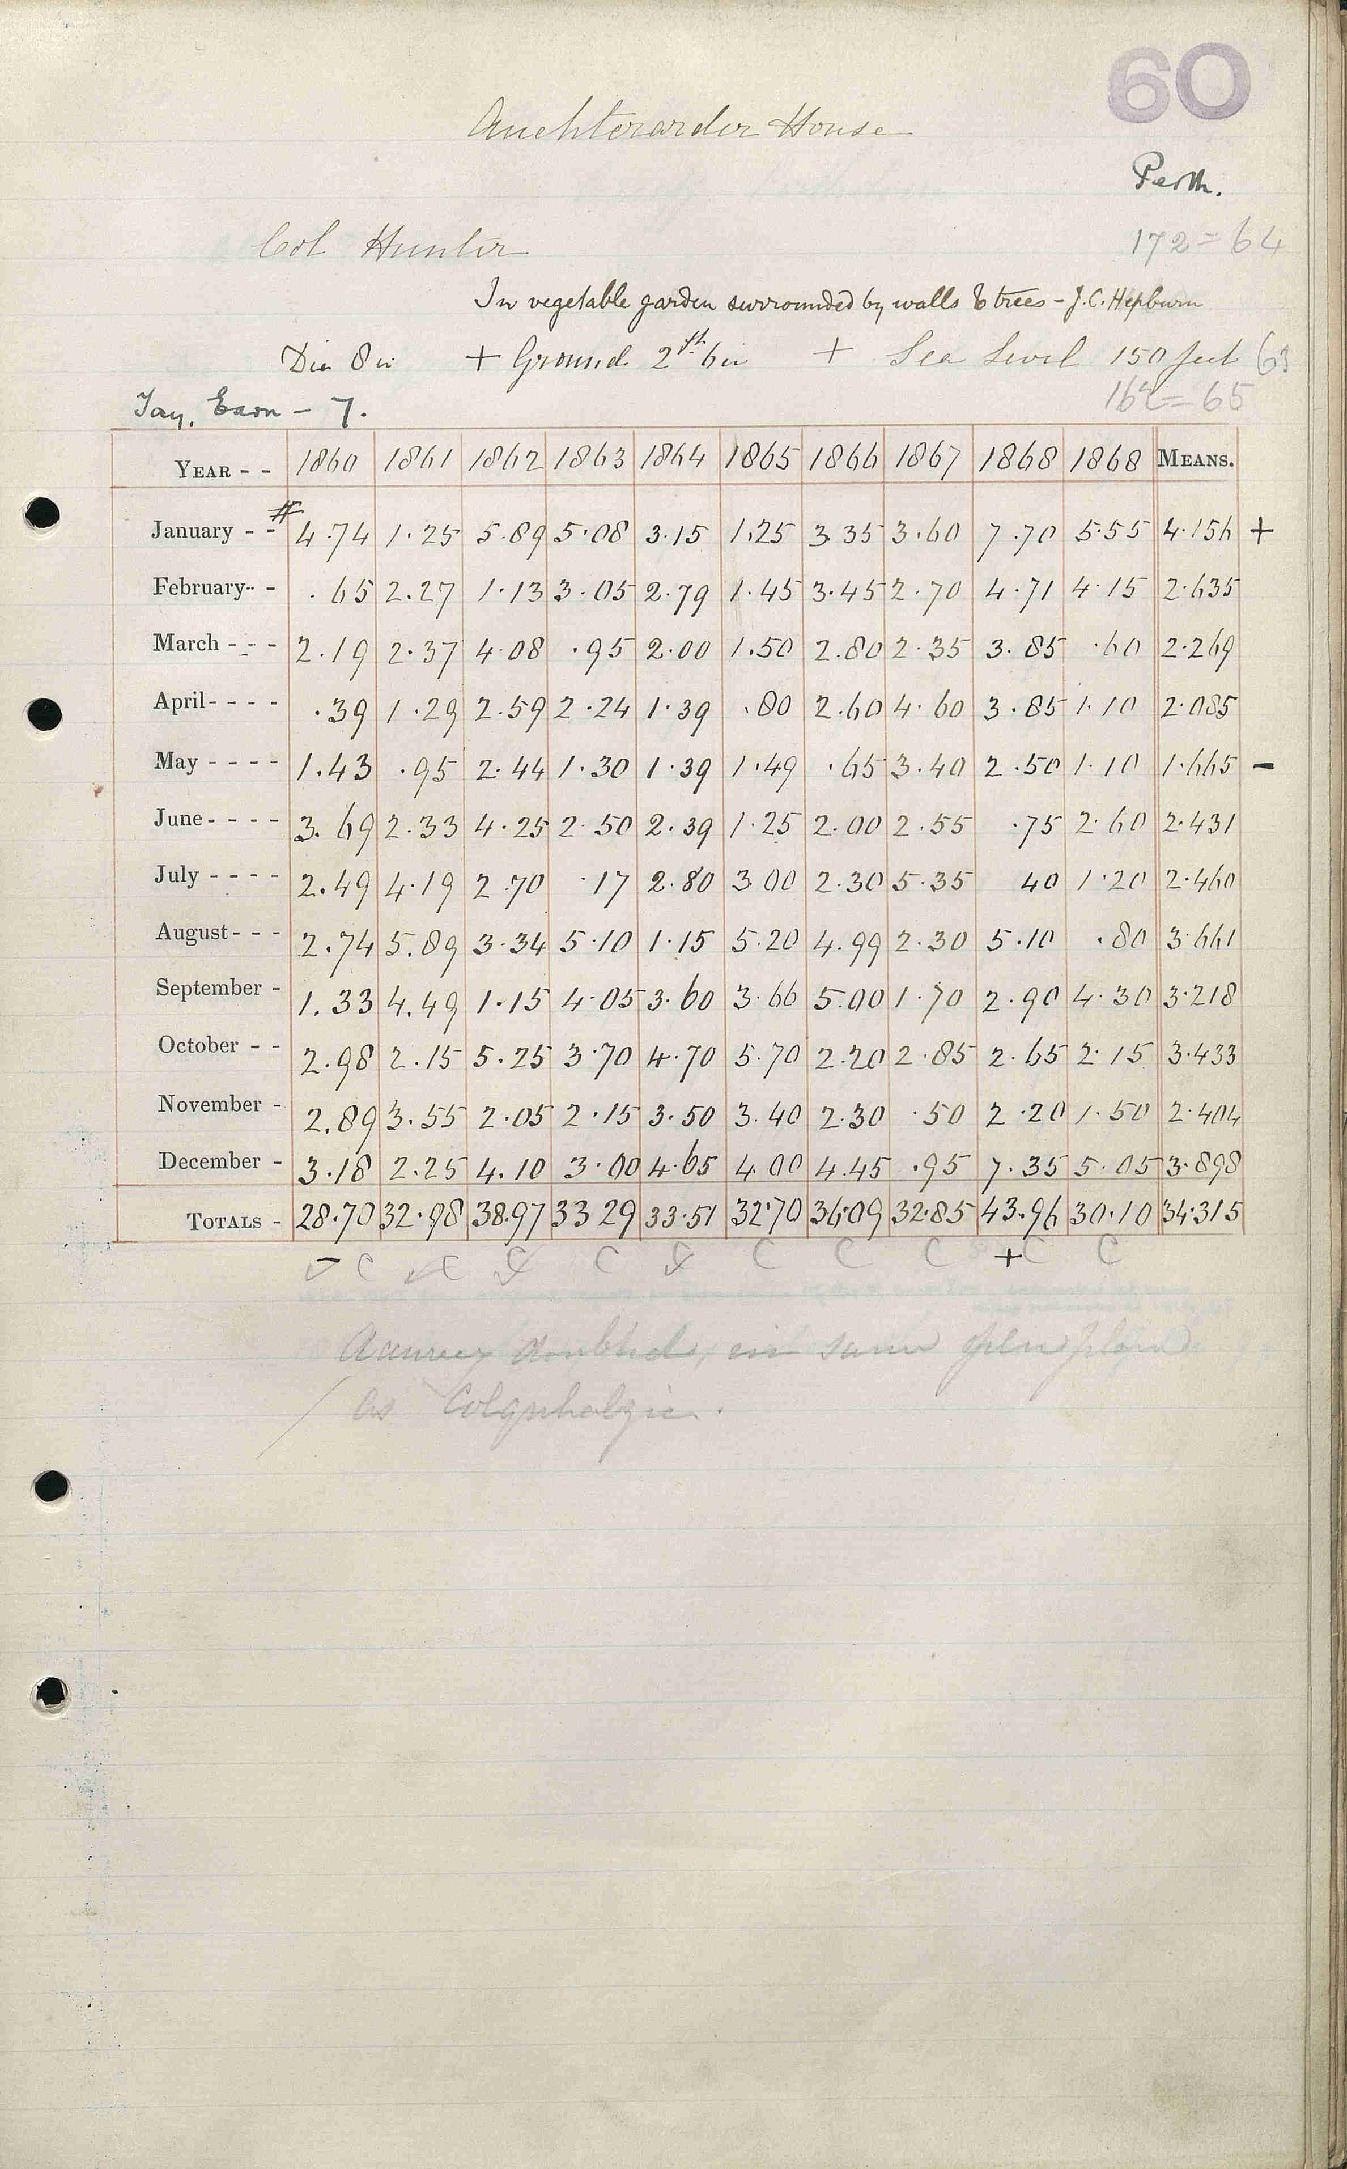 60
Auchterarder House
Perth.
Col Hunter
172 = 64
In vegetable garden surrounded by walls & trees - J.C. Hepburn
Dia 8 in + Ground 2 ft 6 in + Sea Level 150 feet 63
162 = 65
Tay, Earn - 7.
YEAR - - 1860 1861 1862 1863 1864 1865 1866 1867 1868 1868 MEANS.
January - - # 4.74 1.25 5.89 5.08 3.15 1.25 3.35 3.60 7.70 5.55 4.156 +
February - - .65 2.27 1.13 3.05 2.79 1.45 3.45 2.70 4.71 4.15 2.635
March - - - 2.19 2.37 4.08 .95 2.00 1.50 2.80 2.35 3.85 .60 2.269
April - - - - .39 1.29 2.59 2.24 1.39 .80 2.60 4.60 3.85 1.10 2.085
May - - - - 1.43 .95 2.44 1.30 1.39 1.49 .65 3.40 2.50 1.10 1.665 -
June - - - - 3.69 2.33 4.25 2.50 2.39 1.25 2.00 2.55 .75 2.60 2.431
July - - - - 2.49 4.19 2.70 .17 2.80 3.00 2.30 5.35 40 1.20 2.460
August - - - 2.74 5.89 3.34 5.10 1.15 5.20 4.99 2.30 5.10 .80 3.661
September - 1.33 4.49 1.15 4.05 3.60 3.66 5.00 1.70 2.90 4.30 3.218
October - - 2.98 2.15 5.25 3.70 4.70 5.70 2.20 2.85 2.65 2.15 3.433
November - 2.89 3.55 2.05 2.15 3.50 3.40 2.30 .50 2.20 1.50 2.404
December - 3.18 2.25 4.10 3.00 4.65 4.00 4.45 .95 7.35 5.05 3.898
TOTALS - 28.70 32.98 38.97 33 29 33.51 32.70 36.09 32.85 43.96 30.10 34.315
- C C C C C C + C C
in same
as Colquhalzie.